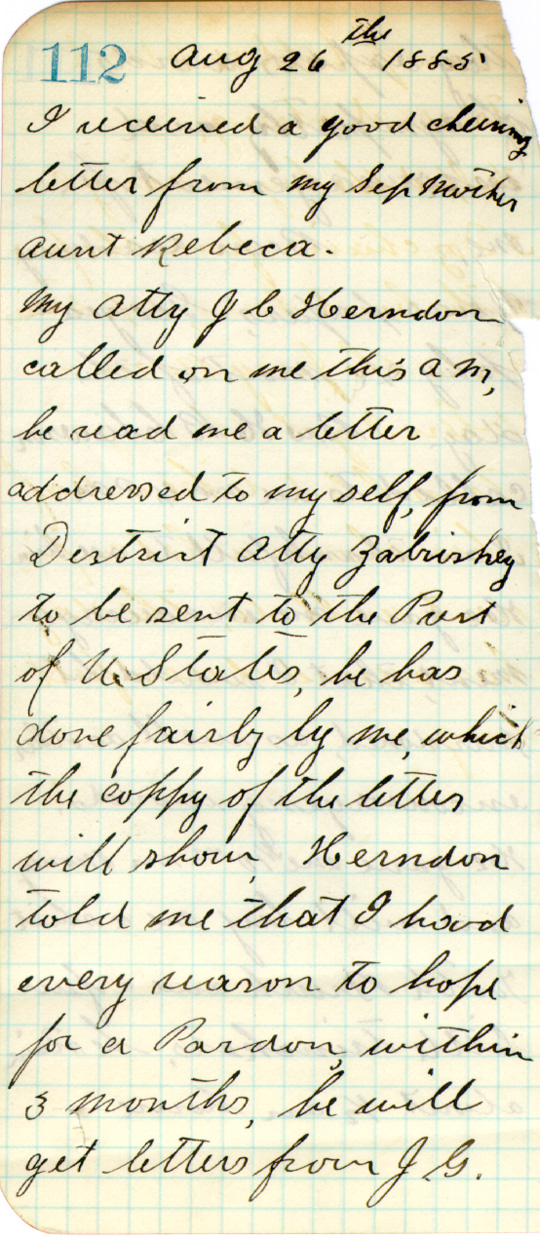 112 Aug 26 the 1885
I received a good cheering
letter from my Sep Mother
aunt Rebeca.
My Atty J C Herndon
called on me this A M,
he read me a letter
addressed to my self, from
Destrict Atty Zabriskey
to be sent to the Prest
of U. States, he has
done fairly by me, which
the coppy of the letter
will show, Herndon
told me that I had
every reason to hope
for a Pardon, within
3 months, he will
get letters from J. G.